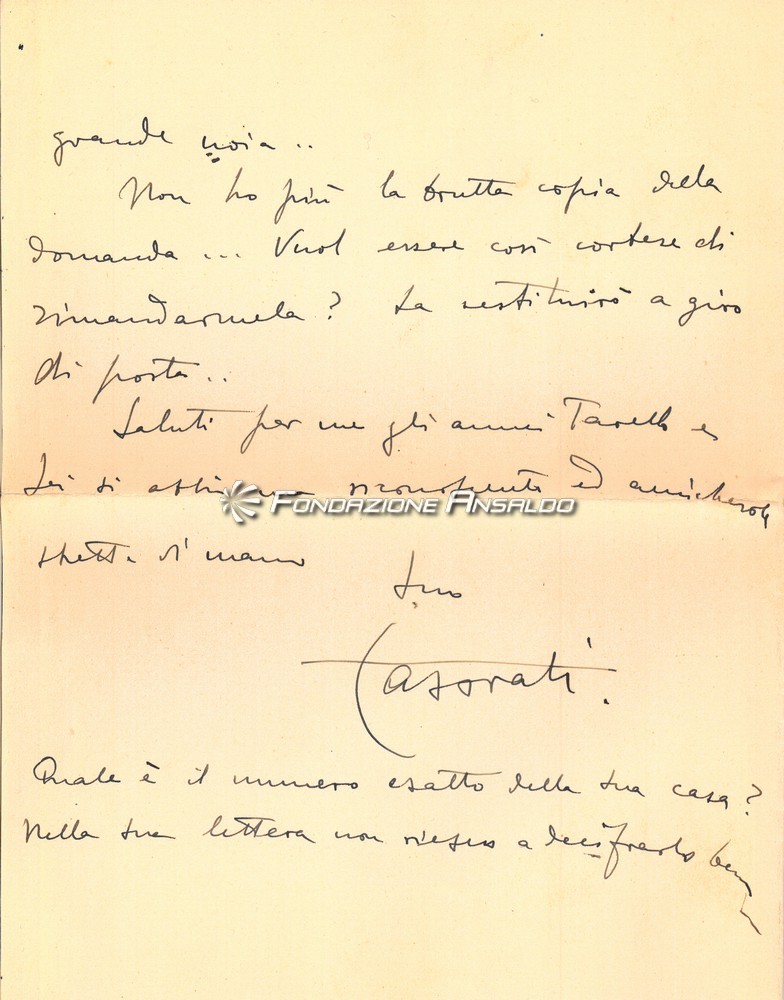 grande noia..
Non ho più la brutta copia della
domanda... Vuol essere così cortese di
rimandarmela? La restituirò a giro
di posta..
Saluti per me gli amici Tarello e
Lei si abbia una riconoscente ed amichevole
FONDAZIONE ANSALDO
stretta di mano
Suo
Casorati.
Quale è il numero esatto della sua casa?
Nella sua lettera non riesco a decifrarlo bene